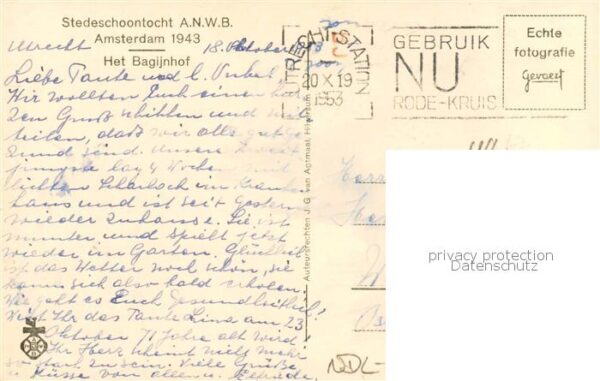 Stedeschoontocht A.N.W.B.
Amsterdam 1943
Het Bagijnhof
Utrecht 18. Oktober
Liebe Tante und l. Onkel,
Wir wollten Euch einen
zen Gruß schicken und
teilen, daß wir alle
sund sind. Unsere
jüngste lag 4 Wochen mit
leichten Scharlach im Kranken
haus und ist seit gestern
wieder zuhause. Sie ist
munter und spielt jetzt
wieder im Garten. Glücklich
ist das Wetter noch schön, sie
kann sich also bald erholen.
Wie geht es Euch gesundheitlich?
Weißt Ihr das Tante Lina am 23
Oktober 71 Jahre alt wird
Ihr Herz scheint nicht mehr
so stark zu sein. Viele Grüße
u. Küsse von allen u.
UTRECHT-STATION
20 X 19
1953
GEBRUIK
NU
RODE-KRUIS
Echte
fotografie
Gevaert
Auteursrechten J. G. van Agtmaal, Hilversum
privacy protection
Datenschutz
NDL-